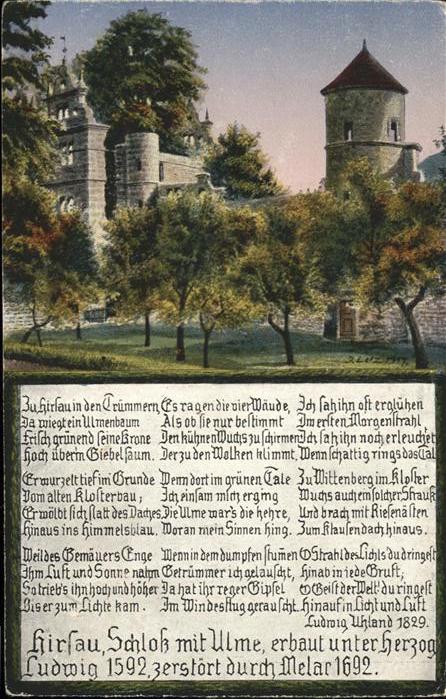 Zu Hirsau in den Trümmern
Da wiegt ein Ulmenbaum
Frisch grünend seine Krone
Hoch überm Giebelsaum.
Er wurzelt tief im Grunde
Vom alten Klosterbau;
Er wölbt sich statt des Daches
Hinaus ins Himmelsblau.
Weil des Gemäuers Enge
Ihm Luft und Sonne nahm
So trieb's ihn hoch und höher
Bis er zum Lichte kam.
Es ragen die vier Wände,
Als ob sie nur bestimmt
Den kühnen Wuchs zu schirmen
Der zu den Wolken klimmt.
Wenn dort im grünen Tale
Ich einsam mich erging
Die Ulme war's die hehre,
Woran mein Sinnen hing.
Wenn in dem dumpfen stumen
Getrümmer ich gelauscht,
Da hat ihr reger Gipfel
Im Windesflug gerauscht.
Ich sah ihn oft erglühen
Im ersten Morgenstrahl
Ich sah ihn noch erleuchtet,
Wenn schattig rings das Tal
Zu Wittenberg im Kloster
Wuchs auch ein solcher Strauß
Und brach mit Riesenästen
Zum Klausendach hinaus.
O Strahl des Lichts du dringest
Hinab in jede Gruft;
O Geist der Welt du ringest
Hinauf in Licht und Luft
Ludwig Uhland 1829.
Hirsau, Schloß mit Ulme, erbaut unter Herzog
Ludwig 1592, zerstört durch Melac 1692.